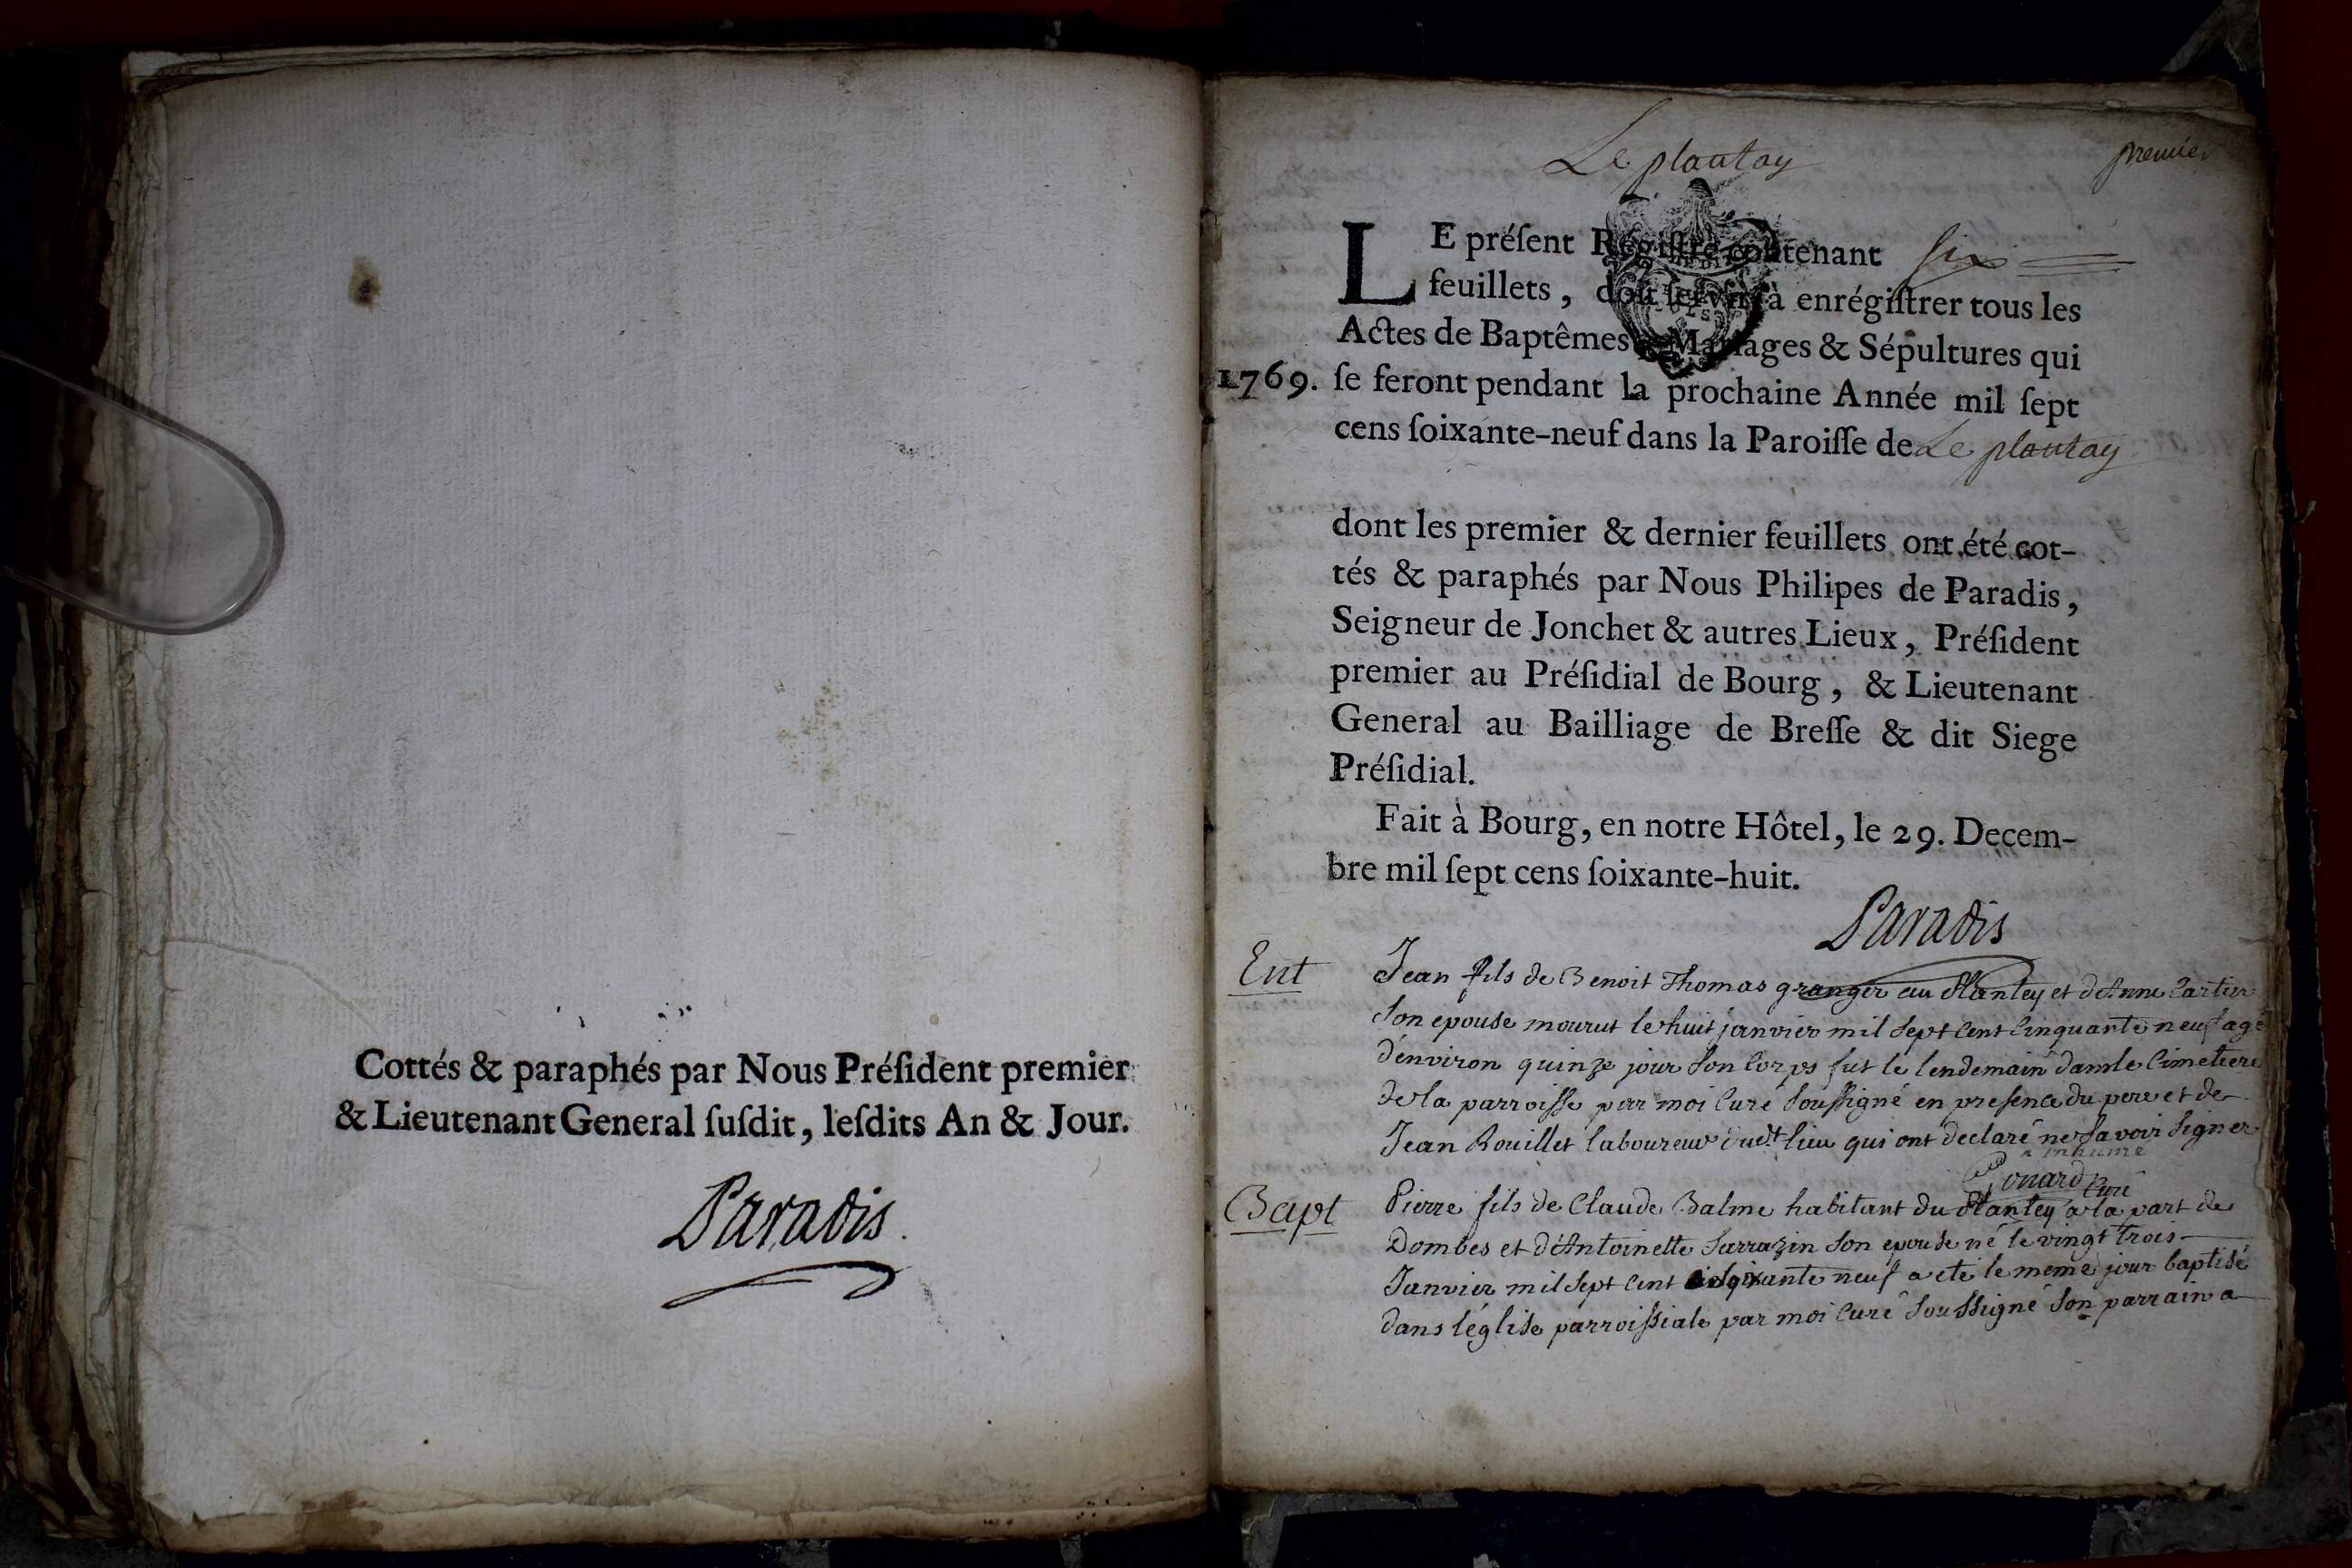 Cottés & paraphés par Nous Préſident premier
& Lieutenant General ſuſdit, leſdits An & Jour.
Paradis
Le plantay
premier
LE préſent Régiſtre contenant six
feuillets, doit ſervir à enrégiſtrer tous les
Actes de Baptêmes, Mariages & Sépultures qui
1769. ſe feront pendant la prochaine Année mil ſept
cens ſoixante-neuf dans la Paroiſſe de Le plantay
dont les premier & dernier feuillets ont été cot-
tés & paraphés par Nous Philipes de Paradis,
Seigneur de Jonchet & autres Lieux, Préſident
premier au Préſidial de Bourg, & Lieutenant
General au Bailliage de Breſſe & dit Siege
Préſidial.
Fait à Bourg, en notre Hôtel, le 29. Decem-
bre mil ſept cens ſoixante-huit.
Paradis
Ent Jean fils de Benoit Thomas granger au Plantey et d'Anne Cartier
son epouse mourut le huit janvier mil sept cent cinquante neuf agé
d'environ quinze jour son corps fut le lendemain dans le cimetiere
de la parroisse par moi curé soussigné en presence du pere et de
Jean Rouillet laboureur dudt lieu qui ont declaré ne savoir signer
^ inhumé
Gonard curé
Bapt Pierre fils de Claude Balme habitant du Plantey a la part de
Dombes et d'Antoinette Sarrazin son epouse né le vingt trois
Janvier mil sept cent soixante neuf a eté le meme jour baptisé
dans l'église parroissiale par moi curé soussigné son parrain a